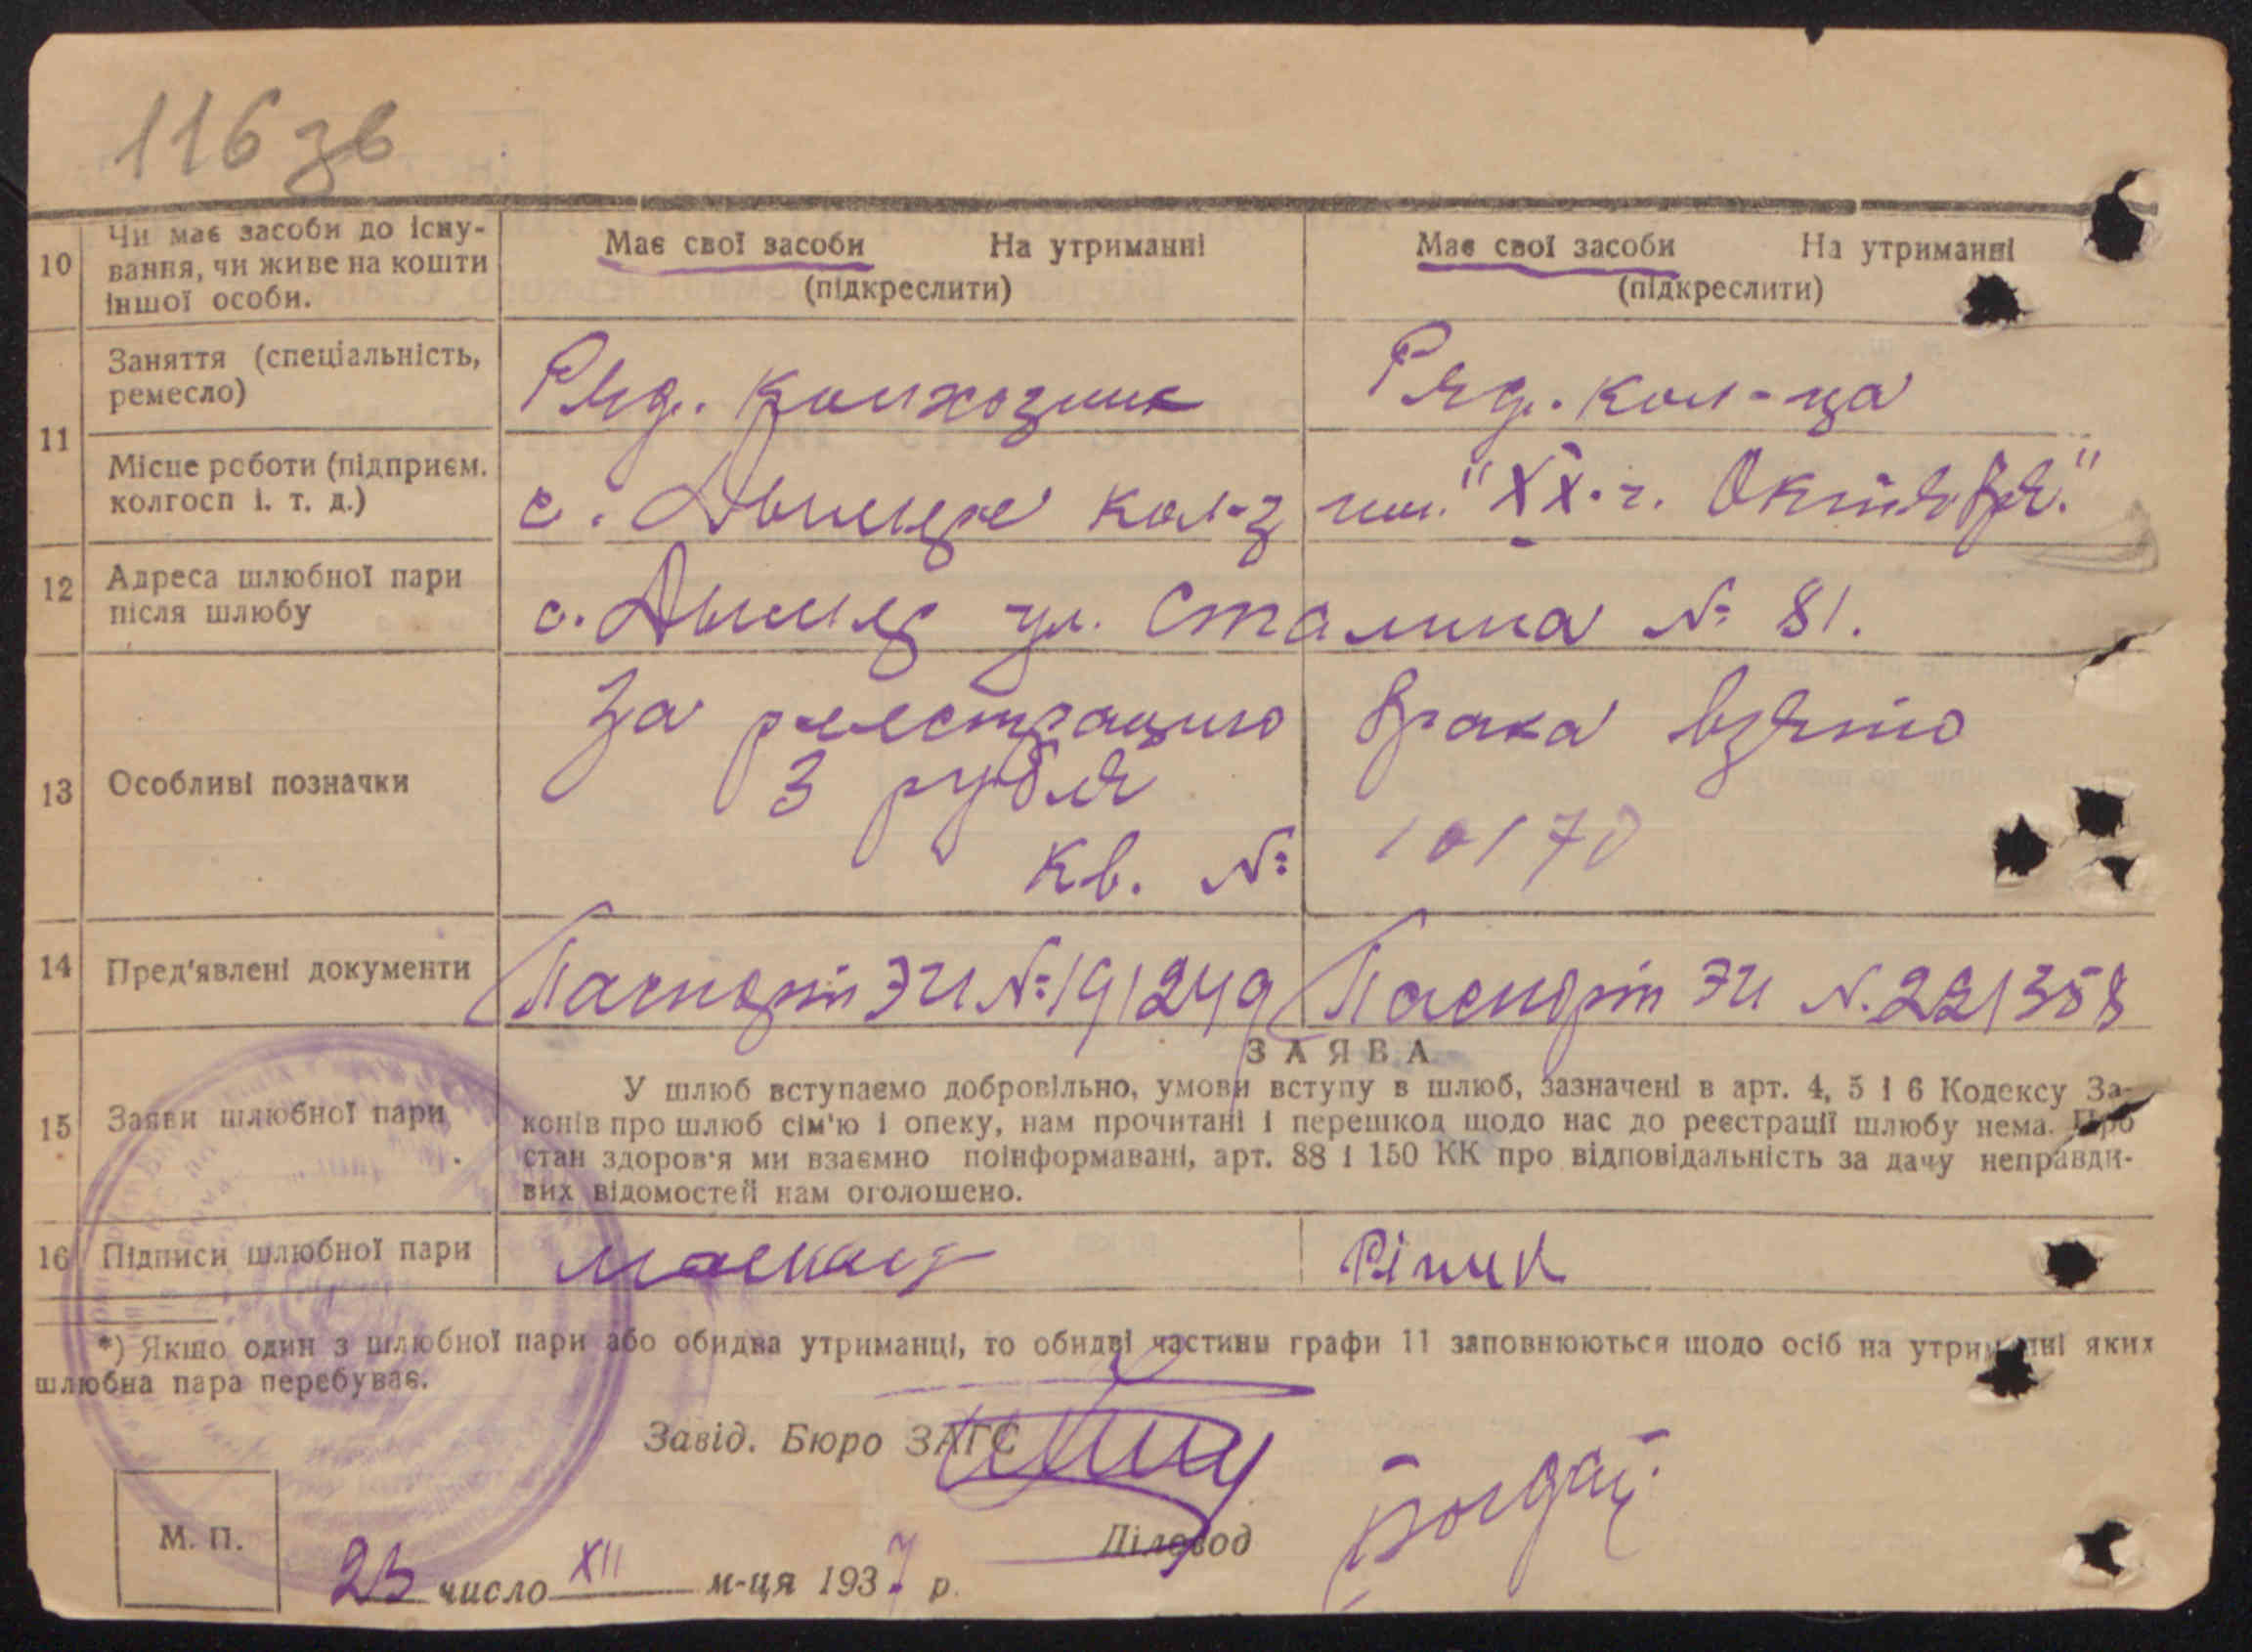 116 зв
10 Чи має засоби до існу-
вання, чи живе на кошти
іншої особи.
Має свої засоби На утриманні
(підкреслити)
Має свої засоби На утриманні
(підкреслити)
11 Заняття (спеціальність,
ремесло)
Ряд. колхозник
Ряд. кол-ца
Місце роботи (підприєм.
колгосп і. т. д.)
с. Дымер кол-з им. "ХХ. г. Октября."
12 Адреса шлюбної пари
після шлюбу
с. ул. Сталина № 81.
13 Особливі позначки
За реестрацию брака взято
3 рубля
Кв. № 10170
14 Пред'явлені документи
Паспорт ЭИ № 191249
Паспорт ЭИ N. 221358
15 Заяви шлюбної пари
ЗАЯВА
У шлюб вступаємо добровільно, умови вступу в шлюб, зазначені в арт. 4, 5 і 6 Кодексу За-
конів про шлюб сім'ю і опеку, нам прочитані і перешкод щодо нас до реєстрації шлюбу нема. Про
стан здоров'я ми взаємно поінформавані, арт. 88 і 150 КК про відповідальність за дачу неправди-
вих відомостей нам оголошено.
16 Підписи шлюбної пари
*) Якщо один з шлюбної пари або обидва утриманці, то обидві частини графи 11 заповнюються щодо осіб на утриманні яких
шлюбна пара перебуває.
Завід. Бюро ЗАГС
Діловод
М. П.
23 число XII м-ця 1937 р.